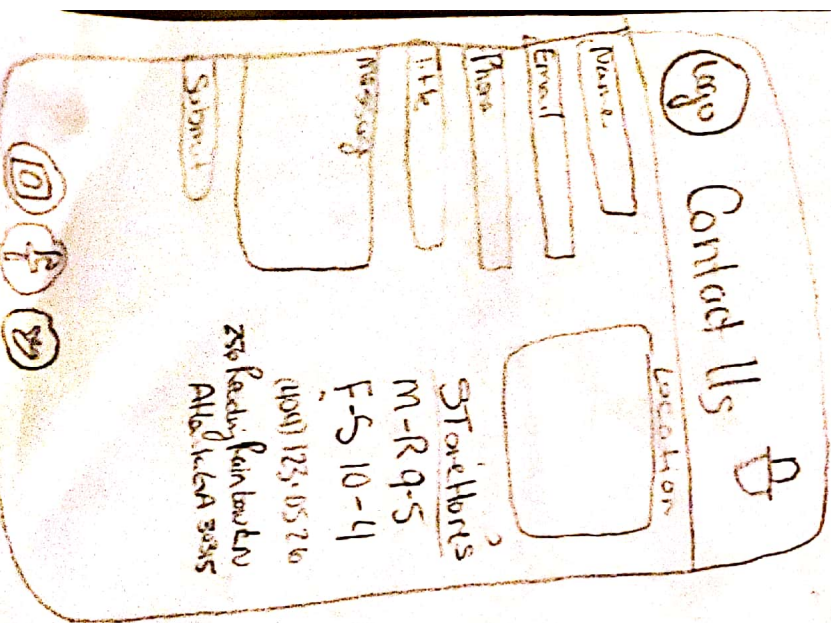 Logo
Contact Us
Name
Email
Phon
Title
Messag
Submit
Location
STore Hores
M-R 9-5
F-S 10-4
(404) 123-1526
256 Reading Rainbow LN
GA 30315